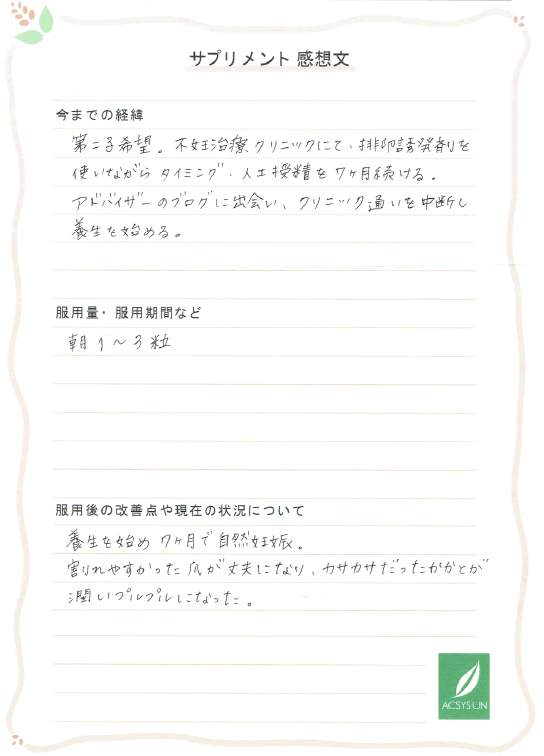 サプリメント 感想文
今までの経緯
第二子希望。不妊治療クリニックにて、排卵誘発剤を
使いながら タイミング、人工授精を7ヶ月続ける。
アドバイザーのブログに出会い、クリニック通いを中断し
養生を始める。
服用量・服用期間など
朝 1～3粒
服用後の改善点や現在の状況について
養生を始め 7ヶ月で自然妊娠。
割れやすかった爪が丈夫になり、カサカサだったかかとが
潤いプルプルになった。
ACSYSUN